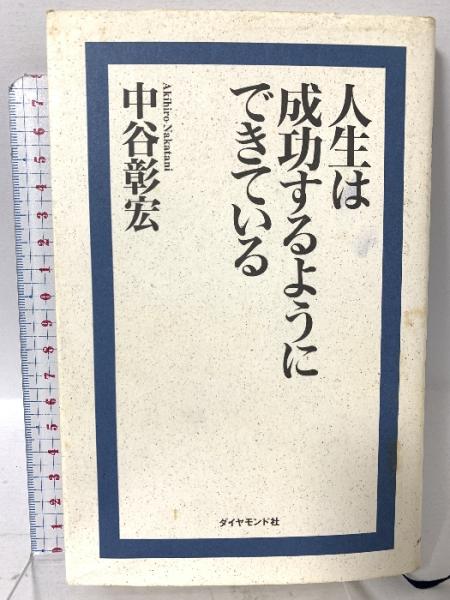 人生は
成功するように
できている
Akihiro-Nakatani
中谷彰宏
ダイヤモンド社